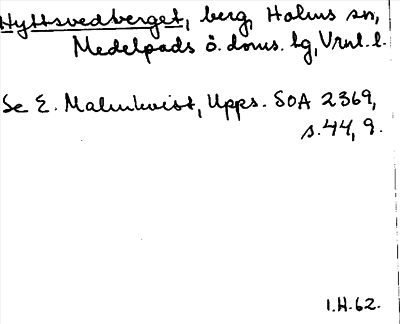 Hyttsvedberget, berg, Holms sn,
Medelpads ö. doms. tg, Vrnl. l.
Se E. Malmkvist, Upps. SOA 2369,
s. 44, 9.
1.H.62.